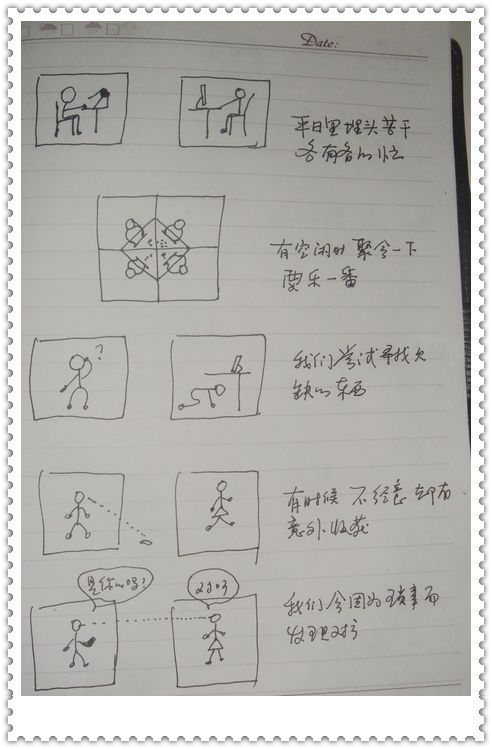 Date:
平日里埋头苦干
各有各的忙
有空闲时 聚会一下
耍乐一番
?
我们尝试寻找欠
缺的东西
有时候 不经意 却有
意外收获
是你的吗?
对呀
我们会因为琐事而
发现对方